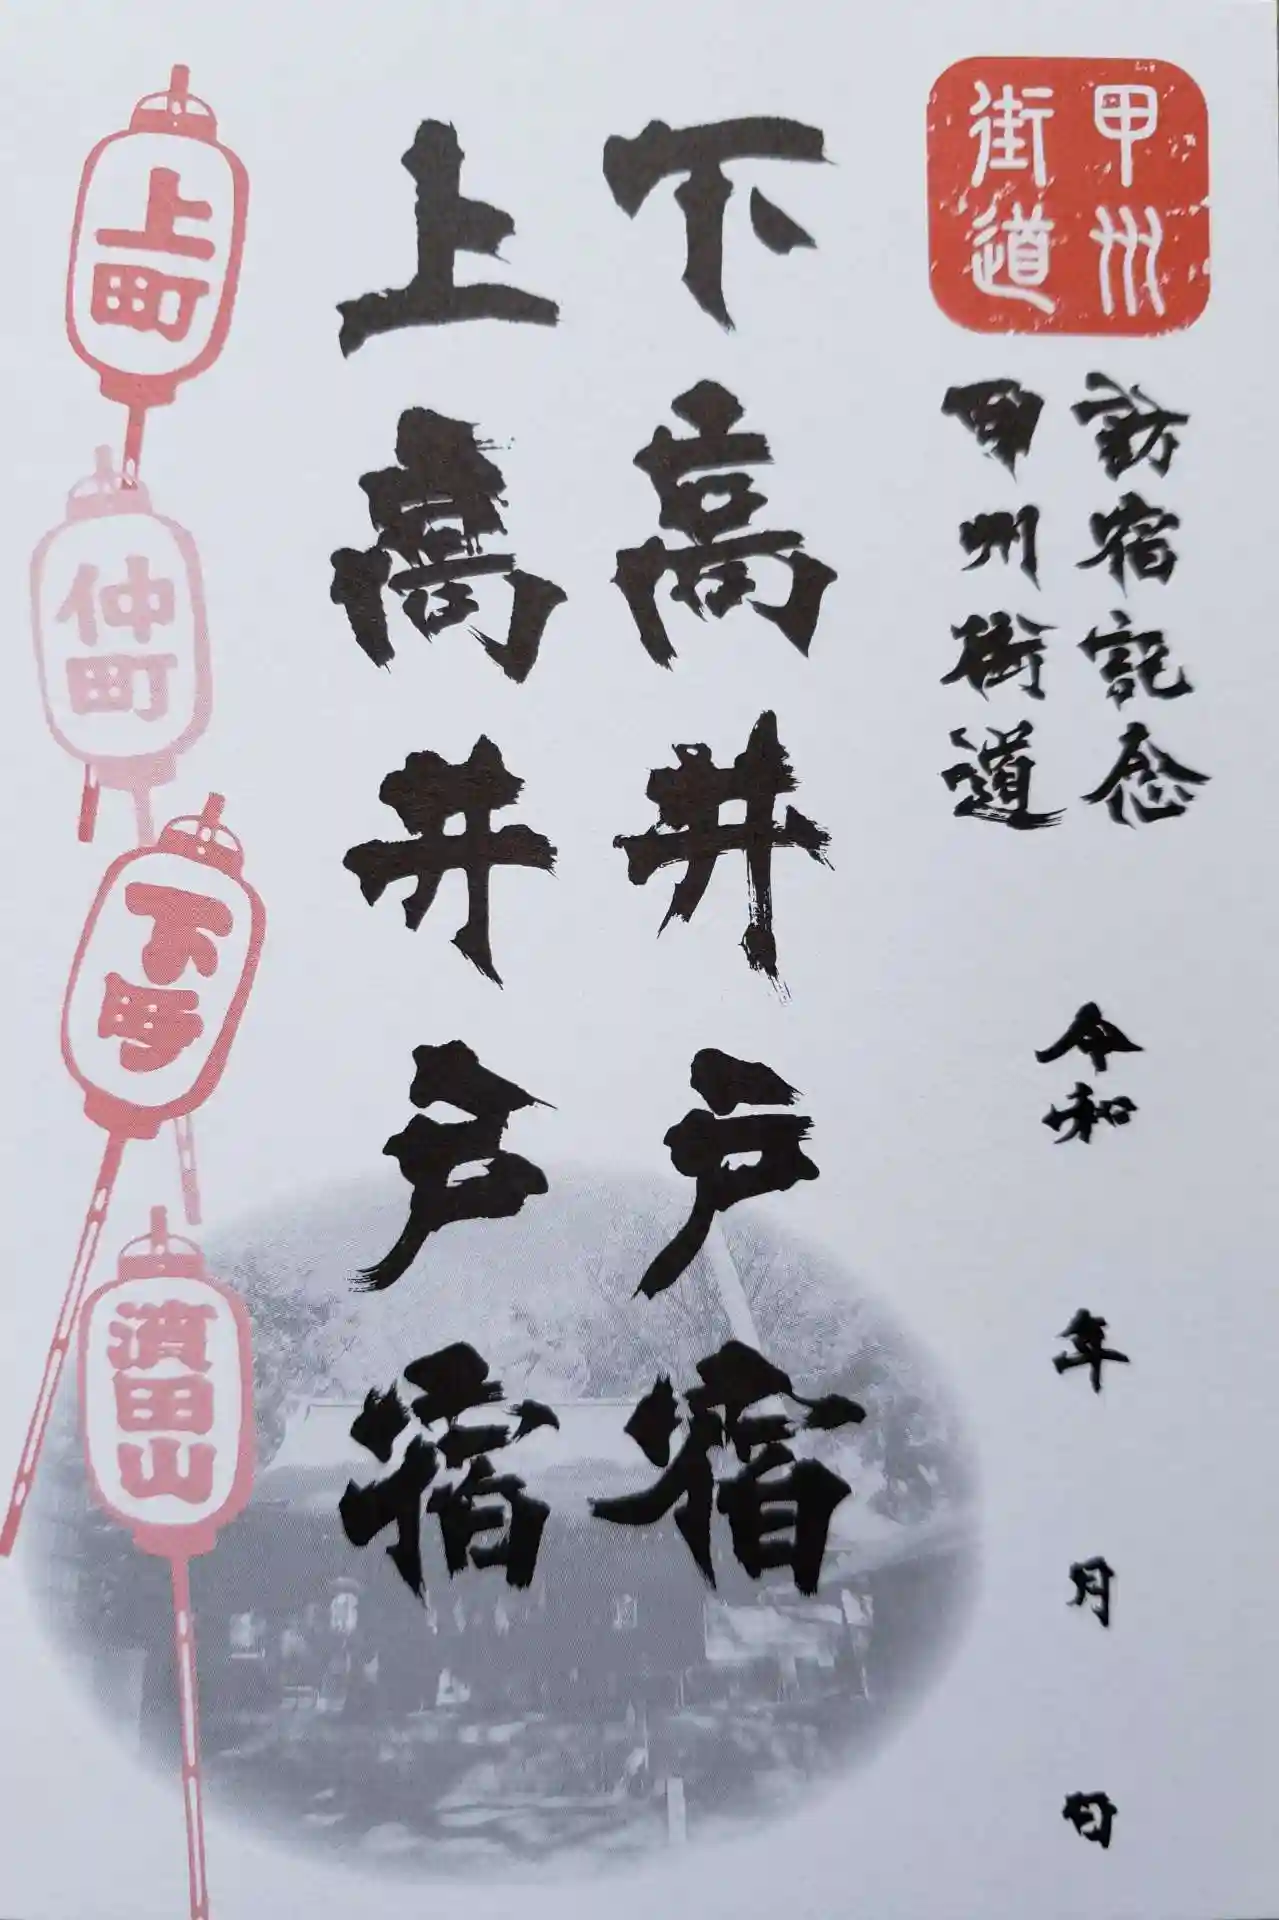 甲州
街道
訪宿記念
甲州街道
令和 年 月 日
下高井戸宿
上高井戸宿
上町
仲町
下町
濱田山